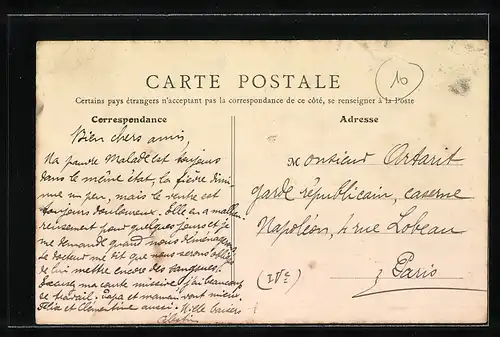 10
CARTE POSTALE
Certains pays étrangers n'acceptant pas la correspondance de ce côté, se renseigner à la Poste
Correspondance
Adresse
Bien chers amis
Ma pauvre Malade est toujours
dans le même état, la fièvre dimi-
nue un peu, mais le ventre est
toujours douloureux. Elle en a malheu-
reusement pour quelques jours et je
me demande quand nous déménagerons
Le docteur me dit que nous serons obligés
de lui mettre encore des sangsues.
ma carte missive, j'ai beaucoup
de travail. Papa et maman vont mieux
et Clémentine aussi. Mille baisers
Célestin
Monsieur Artarit
garde républicain, caserne
Napoléon, 4 rue Lobeau
Paris
(IVe)